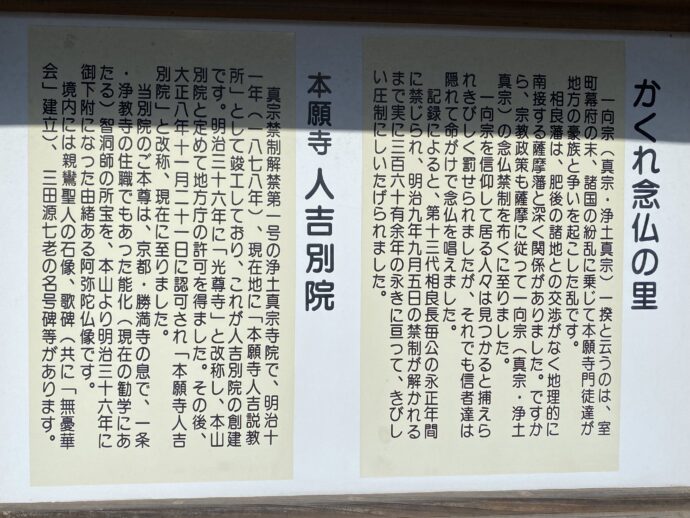 かくれ念仏の里
一向宗（真宗・浄土真宗）一揆と云うのは、室
町幕府の末、諸国の紛乱に乗じて本願寺門徒達が
地方の豪族と争いを起こした乱です。
相良藩は、肥後の諸地との交渉がなく地理的に
南接する薩摩藩と深く関係がありました。ですか
ら、宗教政策も薩摩に従って一向宗（真宗・浄土
真宗）の念仏禁制を布くに至りました。
一向宗を信仰して居る人々は見つかると捕えら
れきびしく罰せられましたが、それでも信者達は
隠れて命がけで念仏を唱えました。
記録によると、第十三代相良長毎公の永正年間
に禁じられ、明治九年九月五日の禁制が解かれる
まで実に三百六十有余年の永きに亘って、きびし
い圧制にしいたげられました。
本願寺 人吉別院
真宗禁制解禁第一号の浄土真宗寺院で、明治十
一年（一八七八年）、現在地に「本願寺人吉説教
所」として竣工しており、これが人吉別院の創建
です。明治三十六年に「光尊寺」と改称し、本山
別院と定めて地方庁の許可を得ました。その後、
大正八年十一月二十一日に認可され「本願寺人吉
別院」と改称、現在に至りました。
当別院のご本尊は、京都・勝満寺の息で、一条
・浄教寺の住職でもあった能化（現在の勧学にあ
たる）智洞師の所宝を、本山より明治三十六年に
御下附になった由緒ある阿弥陀仏像です。
境内には親鸞聖人の石像、歌碑（共に「無憂華
会」建立）、三田源七老の名号碑等があります。